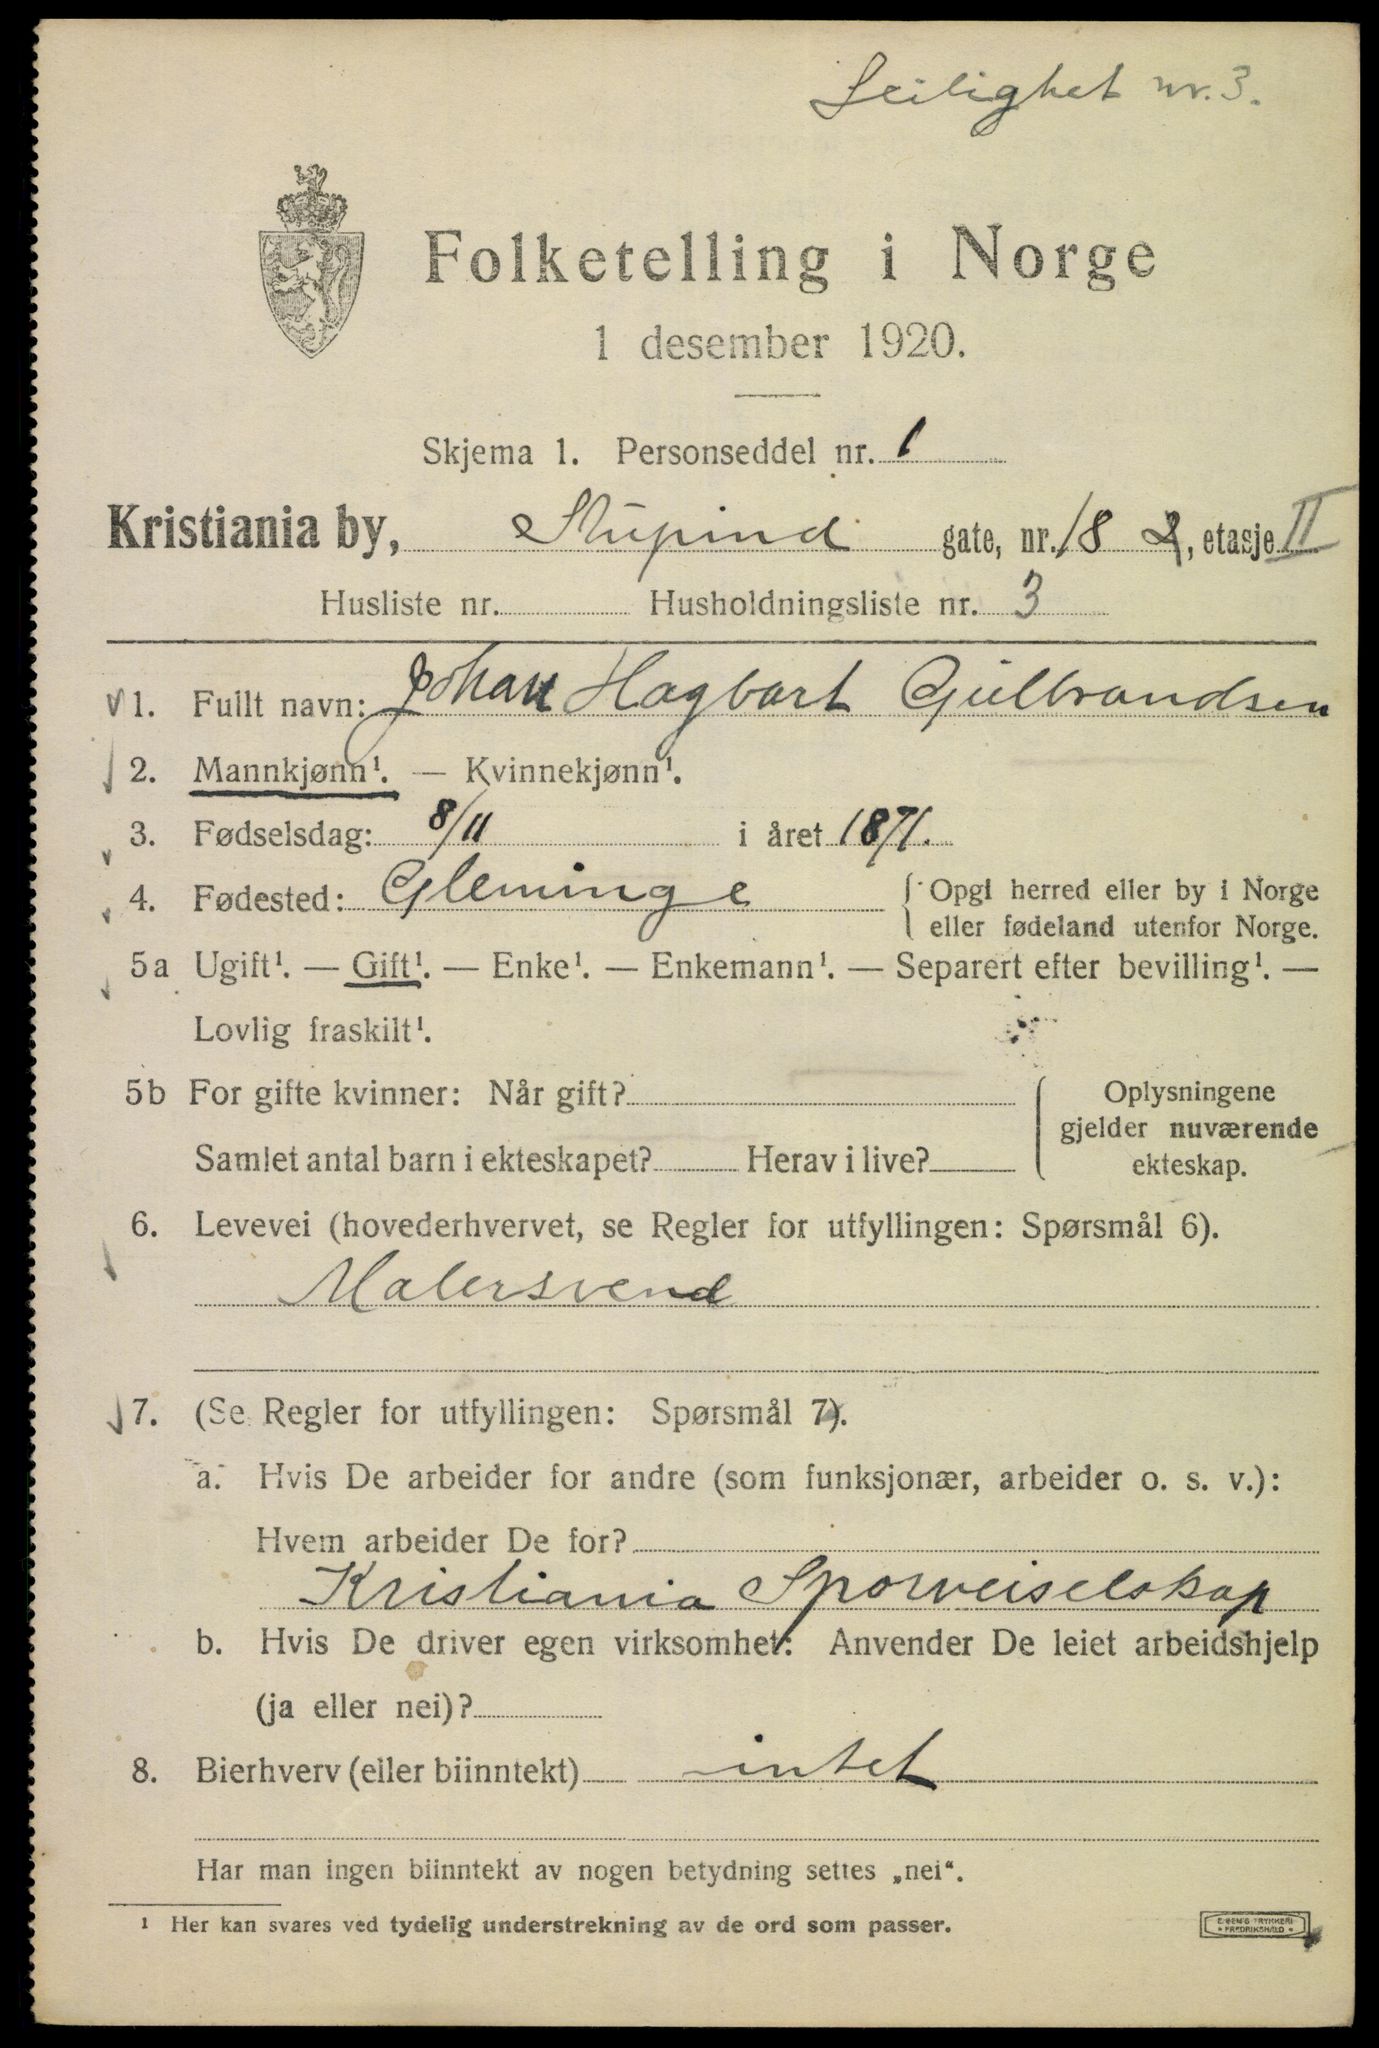 Leilighet nr. 3.
Folketelling i Norge
1 desember 1920.
Skjema 1. Personseddel nr. 1
Kristiania by, Stupind gate, nr. 18 2, etasje II
Husliste nr. Husholdningsliste nr. 3
1. Fullt navn: Johan Hagbart Gulbrandsen
2. Mannkjønn¹. — Kvinnekjønn¹.
3. Fødselsdag: 8/11 i året 1871.
4. Fødested: Gleminge { Opgi herred eller by i Norge
eller fødeland utenfor Norge.
5a Ugift¹. — Gift¹. — Enke¹. — Enkemann¹. — Separert efter bevilling¹. —
Lovlig fraskilt¹.
5b For gifte kvinner: Når gift? { Oplysningene
gjelder nuværende
Samlet antal barn i ekteskapet? Herav i live? ekteskap.
6. Levevei (hovederhvervet, se Regler for utfyllingen: Spørsmål 6).
Malersvend
7. (Se Regler for utfyllingen: Spørsmål 7).
a. Hvis De arbeider for andre (som funksjonær, arbeider o. s. v.):
Hvem arbeider De for?
Kristiania Sporveiselskap
b. Hvis De driver egen virksomhet: Anvender De leiet arbeidshjelp
(ja eller nei)?
8. Bierhverv (eller biinntekt) intet
Har man ingen biinntekt av nogen betydning settes „nei“.
¹ Her kan svares ved tydelig understrekning av de ord som passer.
TRYKKERI
• FREDRIKSHALD •